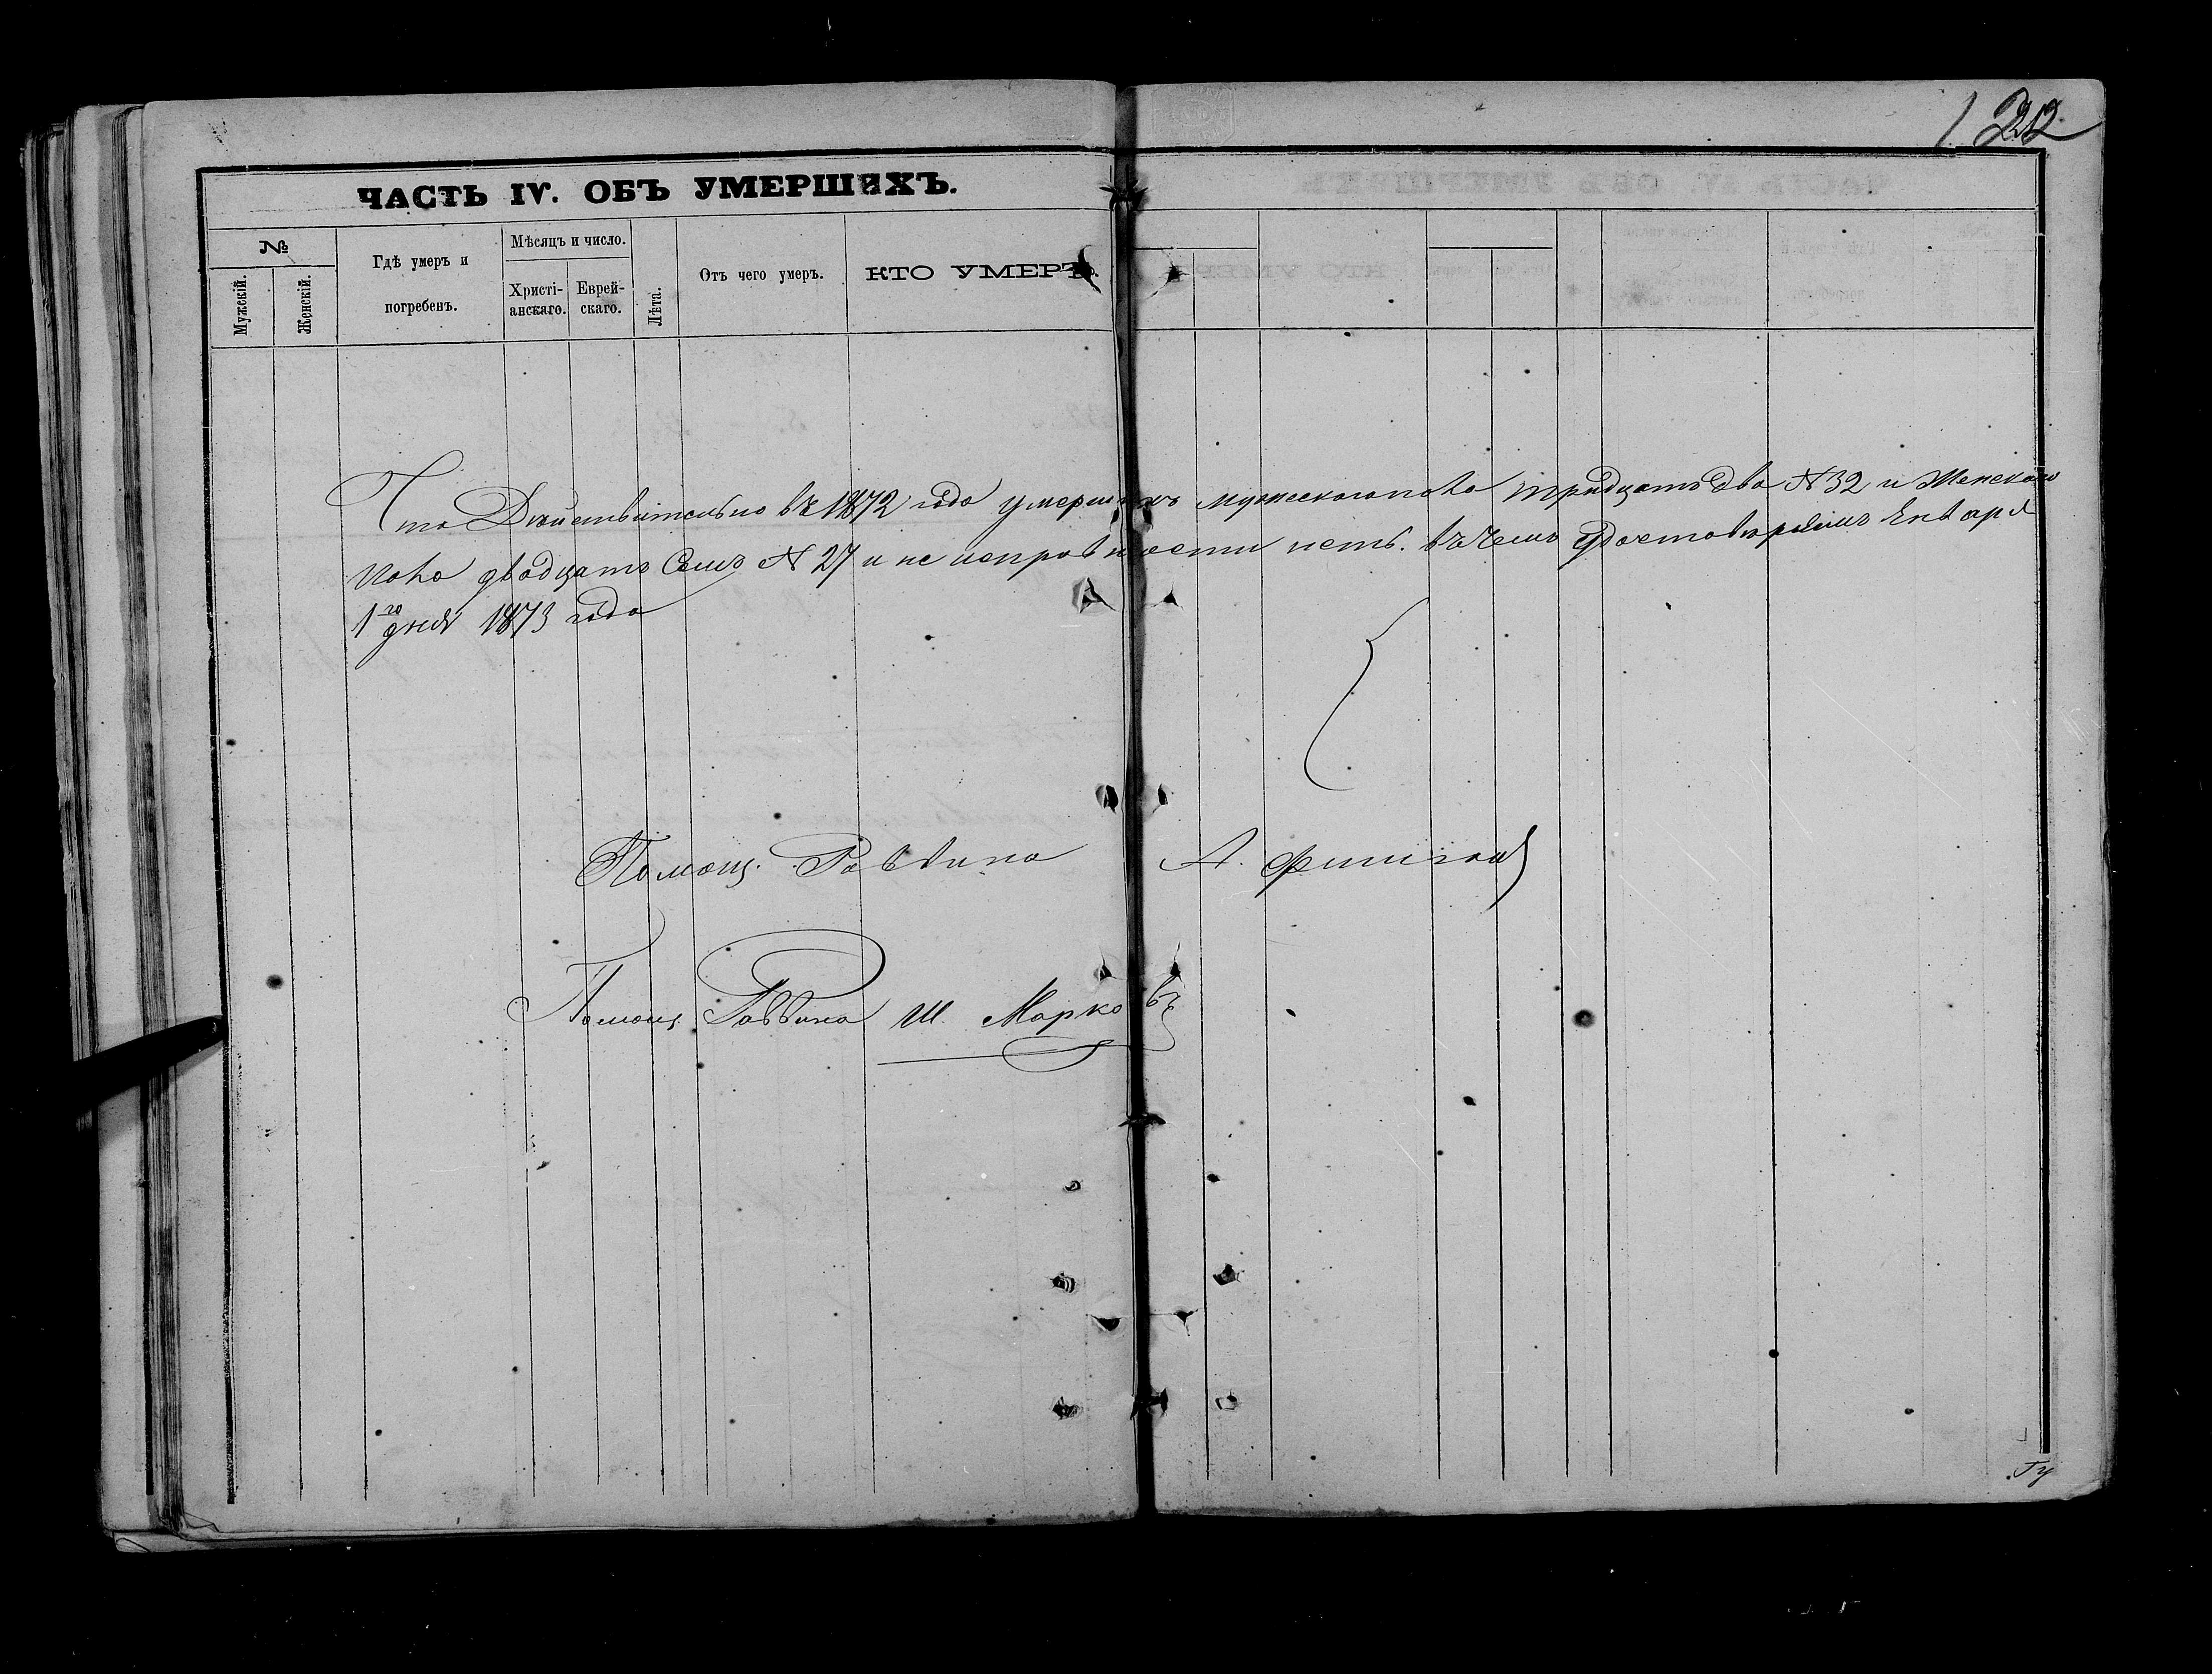 ЧАСТЬ IV. ОБЪ УМЕРШИХЪ.
№
Мужскій.
Женскій.
Гдѣ умеръ и
погребенъ.
Мѣсяцъ и число.
Христі-
анскаго.
Еврей-
скаго.
Лѣта.
Отъ чего умеръ.
КТО УМЕРЪ.
Что Дѣйствительно въ 1872 года умершихъ мужескаго пола тридцать два N 32 и Женскаго
пола двадцать Семъ N 27 и не исправности нетъ. въ чемъ Удостоверяемъ Енваря
1го дня 1873 года
Помощ. Раввина А.
Помощ. Раввина Ш. Марковъ